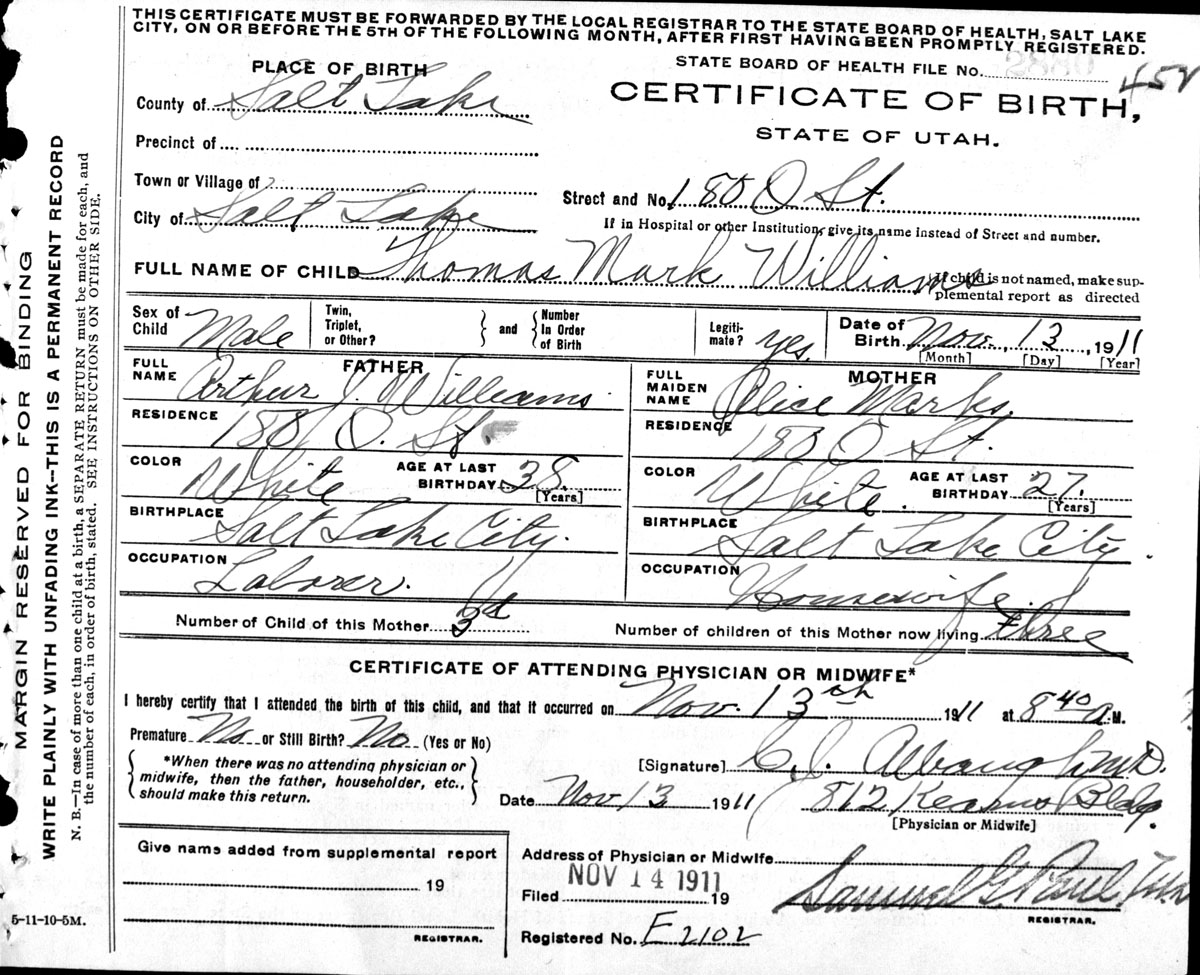 THIS CERTIFICATE MUST BE FORWARDED BY THE LOCAL REGISTRAR TO THE STATE BOARD OF HEALTH, SALT LAKE
CITY, ON OR BEFORE THE 5TH OF THE FOLLOWING MONTH, AFTER FIRST HAVING BEEN PROMPTLY REGISTERED.
PLACE OF BIRTH
STATE BOARD OF HEALTH FILE No.
County of Salt Lake
CERTIFICATE OF BIRTH,
STATE OF UTAH.
Precinct of
Town or Village of
Street and No. 180 O St.
City of Salt Lake
If in Hospital or other Institution, give its name instead of Street and number.
FULL NAME OF CHILD Thomas Mark Williams
If child is not named, make sup-
plemental report as directed
Sex of Child Male
Twin, Triplet, or Other? } and { Number In Order of Birth
Legiti-mate? yes
Date of Birth Nov. 13, 1911
[Month] [Day] [Year]
FATHER
FULL NAME Arthur J. Williams
RESIDENCE 180 O. St.
COLOR White
AGE AT LAST BIRTHDAY 38 [Years]
BIRTHPLACE Salt Lake City.
OCCUPATION Laborer.
MOTHER
FULL MAIDEN NAME Alice Marks.
RESIDENCE 180 O St.
COLOR White.
AGE AT LAST BIRTHDAY 27. [Years]
BIRTHPLACE Salt Lake City.
OCCUPATION Housewife.
Number of Child of this Mother 3d
Number of children of this Mother now living three
CERTIFICATE OF ATTENDING PHYSICIAN OR MIDWIFE*
I hereby certify that I attended the birth of this child, and that it occurred on Nov. 13th 1911 at 8 40 A.M.
Premature No or Still Birth? No (Yes or No)
*When there was no attending physician or
midwife, then the father, householder, etc.,
should make this return.
[Signature] C. J. Albaugh M.D.
Date Nov 13 1911 812 Kearns Bldg.
[Physician or Midwife]
Give name added from supplemental report
19
REGISTRAR.
Address of Physician or Midwife
Filed NOV 14 1911 19
Samuel G. Paul
REGISTRAR.
Registered No. E2102
5-11-10-5M.
MARGIN RESERVED FOR BINDING
WRITE PLAINLY WITH UNFADING INK--THIS IS A PERMANENT RECORD
N. B.—In case of more than one child at a birth, a SEPARATE RETURN must be made for each, and
the number of each, in order of birth, stated. SEE INSTRUCTIONS ON OTHER SIDE.